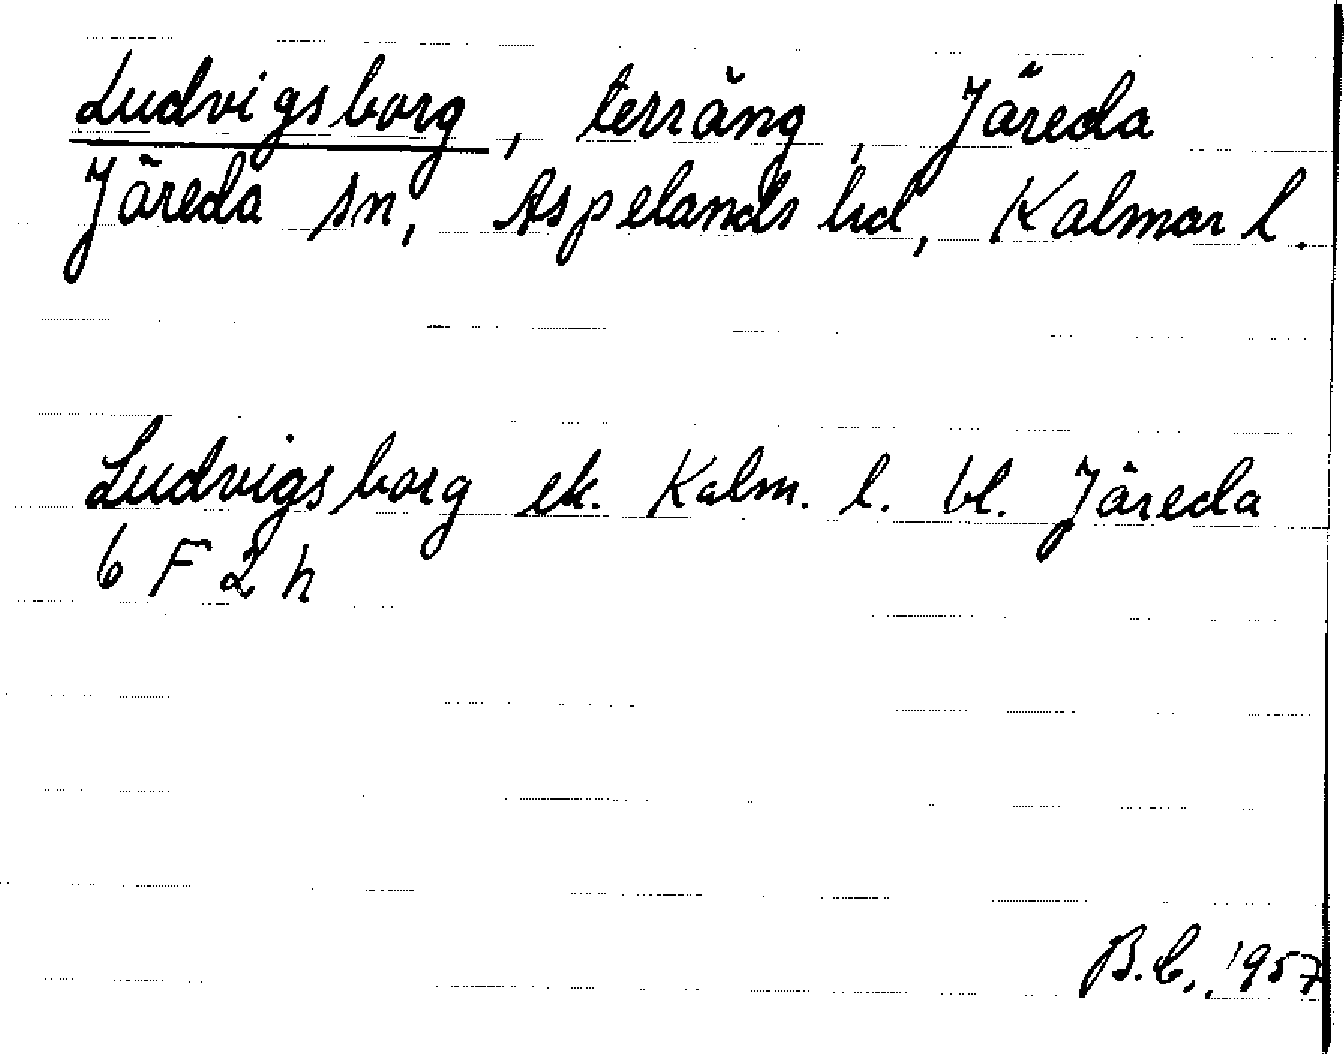 Ludvigsborg, terräng, Järeda
Järeda sn, Aspelands hd, Kalmar l.
Ludvigsborg ek. Kalm. l. bl. Järeda
6 F 2 h
B.C., 1957